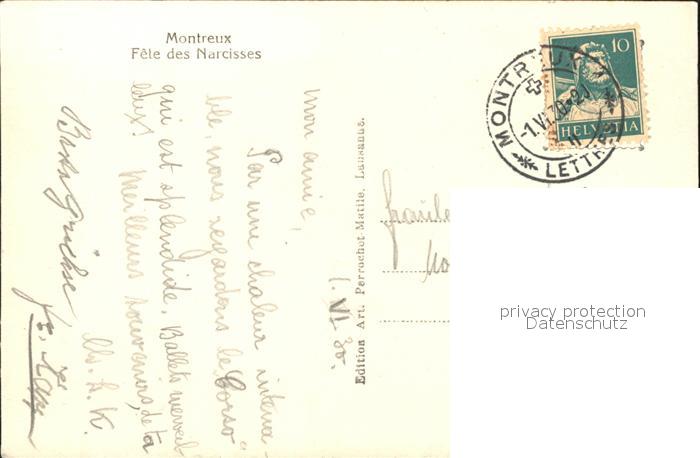 Montreux
Fête des Narcisses
mon amie,
Par une chaleur intena-
ble, nous regardons le "Corso"
qui est splendide. Ballets merveil-
leux!
Meilleurs souvenirs, de ta
M. L. K.
Beste Grüsse
1. VI. 30.
Edition Art. Perrochet-Matile, Lausanne.
MONTREUX
-1.VI.30-20
LETTRES
10
HELVETIA
privacy protection
Datenschutz